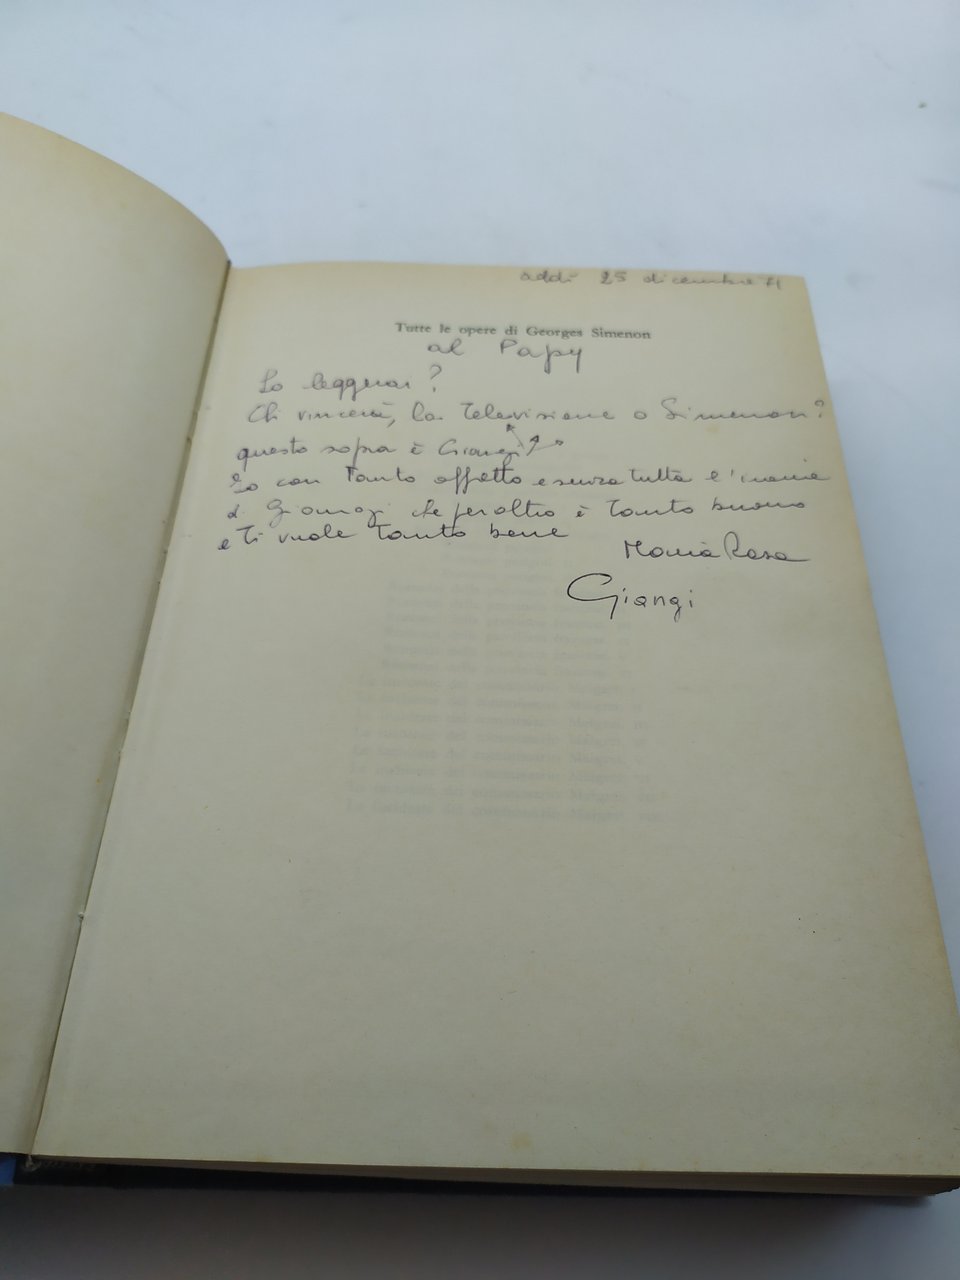 addì 25 dicembre 71
Tutte le opere di Georges Simenon
al Papy
Lo leggerai?
Chi vincerà, la televisione o Simenon?
questo sopra è Giangi
Io con tanto affetto e senza tutta l'ironia
di Giangi che peraltro è tanto buono
e ti vuole tanto bene
Maria Rosa
Giangi